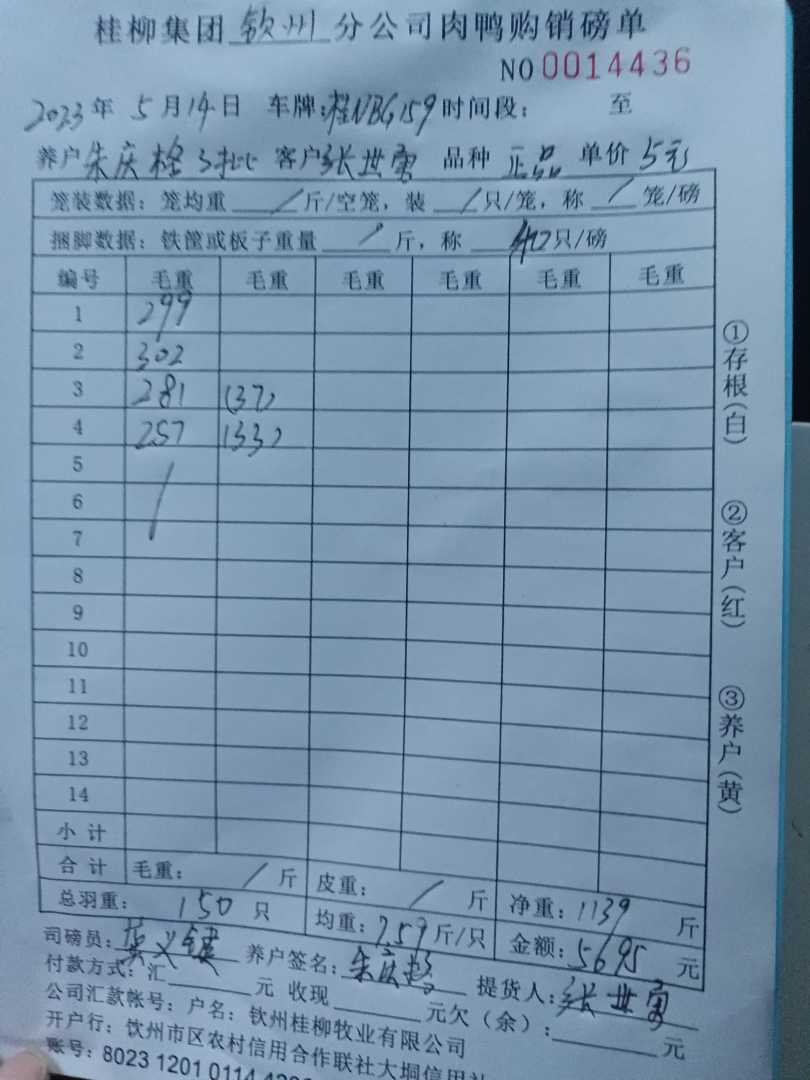 桂柳集团 钦州 分公司肉鸭购销磅单
NO 0014436
2023年 5月14日 车牌:桂NBG159 时间段: 至
养户 朱庆 3批 客户 张世 品种 正品 单价 5元
笼装数据: 笼均重 / 斤/空笼, 装 / 只/笼, 称 / 笼/磅
捆脚数据: 铁筐或板子重量 / 斤, 称 40只/磅
编号 毛重 毛重 毛重 毛重 毛重 毛重
1 299
2 302
3 281 (37)
4 257 (33)
5 /
6
7
8
9
10
11
12
13
14
小计
合计 毛重: / 斤 皮重: / 斤 净重: 1139 斤
总羽重: 150 只 均重: 7.59 斤/只 金额: 5695 元
司磅员: 养户签名: 朱庆 提货人: 张世
付款方式: 汇 元 收现 元欠(余): 元
公司汇款帐号: 户名: 钦州桂柳牧业有限公司
开户行: 钦州市区农村信用合作联社大垌信用社
账号: 8023 1201 0114
①存根(白)
②客户(红)
③养户(黄)